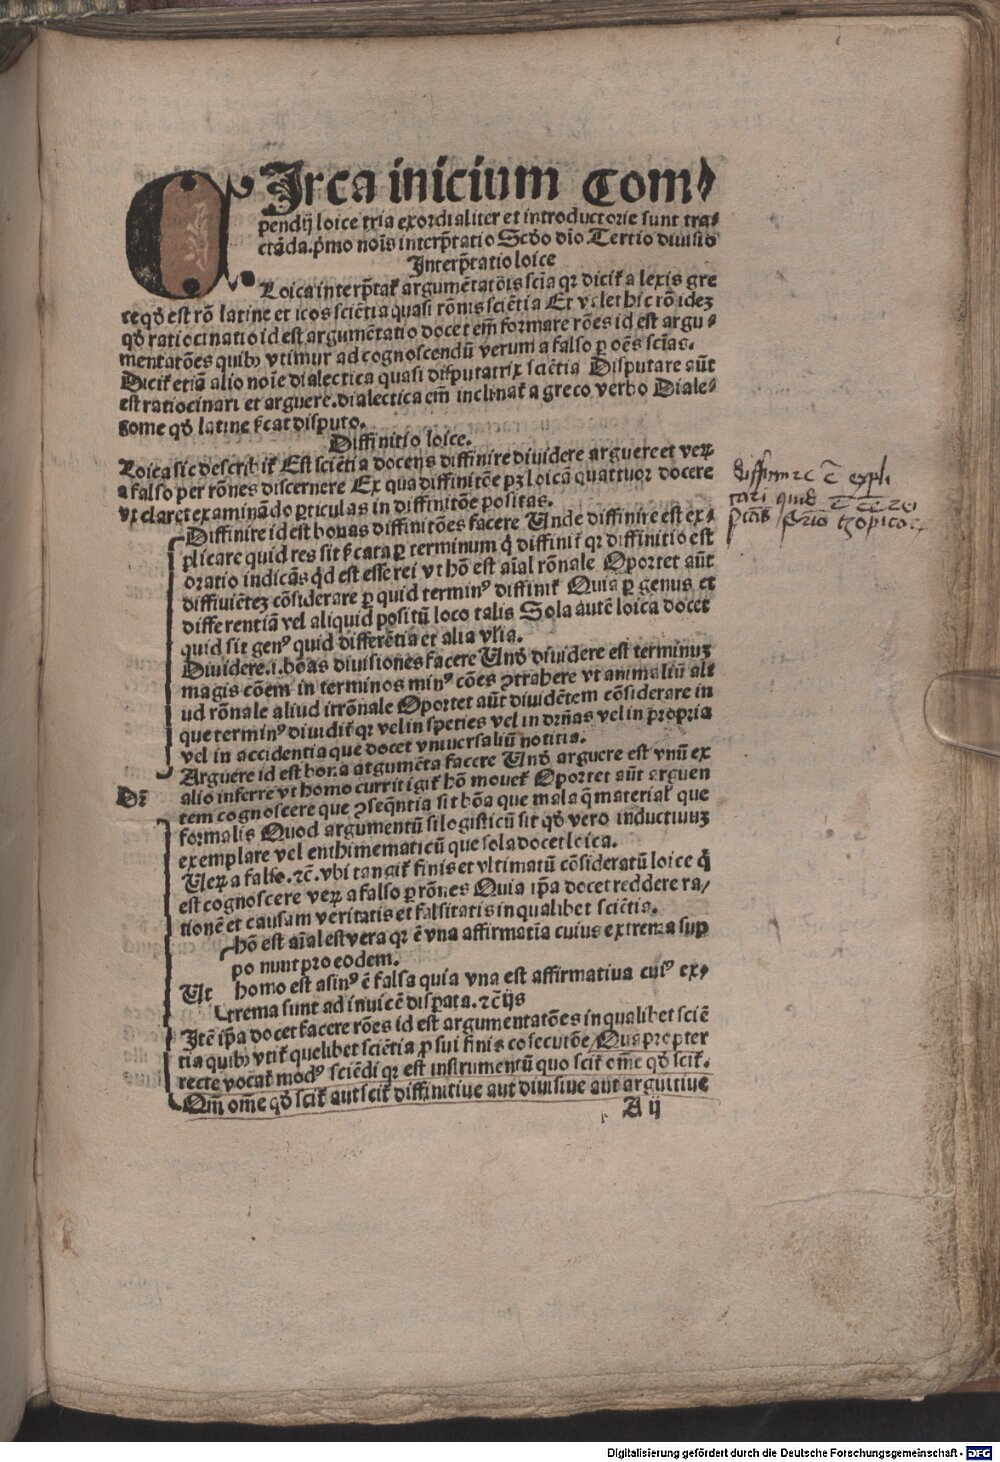 CIrca inicium Com⸗
pendij loice tria exordialiter et introductorie sunt tra⸗
ctãda. p̃mo nois̃ interp̃tatio Scd̃o diõ Tertio diuisio
Interp̃tatio loice
Loica interp̃tat᷑ argumẽtatõis scĩa qꝛ dicit᷑ a lexis gre
ce qd̃ est rõ latine et icos sciẽtia quasi rõnis sciẽtia Et valet hic rõ ideꝫ
qd̃ ratiocinatio id est argumẽtatio docet em̃ formare rões id est argu⸗
mentatões quibꝰ vtimur ad cognoscendũ verum a falso ꝑ oẽs scĩas.
Dicit᷑ etiã alio noĩe dialectica quasi disputatrix sciẽtia Disputare aũt
est ratiocinari et arguere. dialectica em̃ inclinat᷑ a greco verbo Diale⸗
gome qd̃ latine ẜcat disputo.
Diffinitio loice.
Loica sic describit᷑ Est sciẽtia docens diffinire diuidere arguere et veꝝ
a falso per rões discernere Ex qua diffinitõe pꝫ loicã quattuor docere
vt claret examinãdo ꝑticulas in diffinitõe positas.
Diffinire id est bonas diffinitões facere Unde diffinire est ex⸗
plicare quid res sit ẜcata ꝑ terminum q̃ diffinit᷑ qꝛ diffinitio est
oratio indicãs qd̃ est esse rei vt hõ est aĩal rõnale Oportet aũt
diffiniẽteꝫ cõsiderare ꝑ quid terminꝰ diffinit᷑ Quia ꝑ genus et
differentiã vel aliquid positũ loco talis Sola autẽ loica docet
quid sit genꝰ quid differẽtia et alia vl̃ia.
Diuidere .i. bõas diuisiones facere Und̃ diuidere est terminuꝫ
magis cõem in terminos minꝰ cões ꝯtrahere vt animaliũ ali
ud rõnale aliud irrõnale Oportet aũt diuidẽtem cõsiderare in
que terminꝰ diuidit᷑ qꝛ vel in species vel in drñas vel in propria
vel in accidentia que docet vniuersaliũ notitia.
Arguere id est bona argumẽta facere Und̃ arguere est vnũ ex
alio inferre vt homo currit igit᷑ hõ mouet᷑ Oportet aũt arguen
Dr̃
tem cognoscere que ꝯseq̃ntia sit bõa que mala q̃ material᷑ que
formalis Quod argumentũ silogisticũ sit qd̃ vero inductiuuꝫ
exemplare vel enthimematicũ que sola docet loica.
Ueꝝ a falso. ⁊c̃. vbi tangit᷑ finis et vltimatũ cõsideratũ loice q̃
est cognoscere veꝝ a falso ꝑ rões Quia ip̃a docet reddere ra/
tionẽ et causam veritatis et falsitatis in qualibet sciẽtia.
hõ est aĩal est vera qꝛ ẽ vna affirmatĩa cuius extrema sup
po nunt pro eodem.
Ut homo est asinꝰ ẽ falsa quia vna est affirmatiua cuiꝰ ex⸗
trema sunt ad inuicẽ disparata. ⁊c̃ijs
Itẽ ip̃a docet facere rões id est argumentatões in qualibet sciẽ
tia quibꝰ vtit᷑ quelibet sciẽtia ꝓ sui finis cõsecutõe / Quapropter
recte vocat᷑ modꝰ sciẽdi qꝛ est instrumentũ quo scit᷑ om̃e qd̃ scit᷑.
Qm̃ om̃e qd̃ scit᷑ aut scit᷑ diffinitiue aut diuisiue aut arguitiue
A ij
diffinire ẽ expli
cari quid
Digitalisierung gefördert durch die Deutsche Forschungsgemeinschaft - DFG